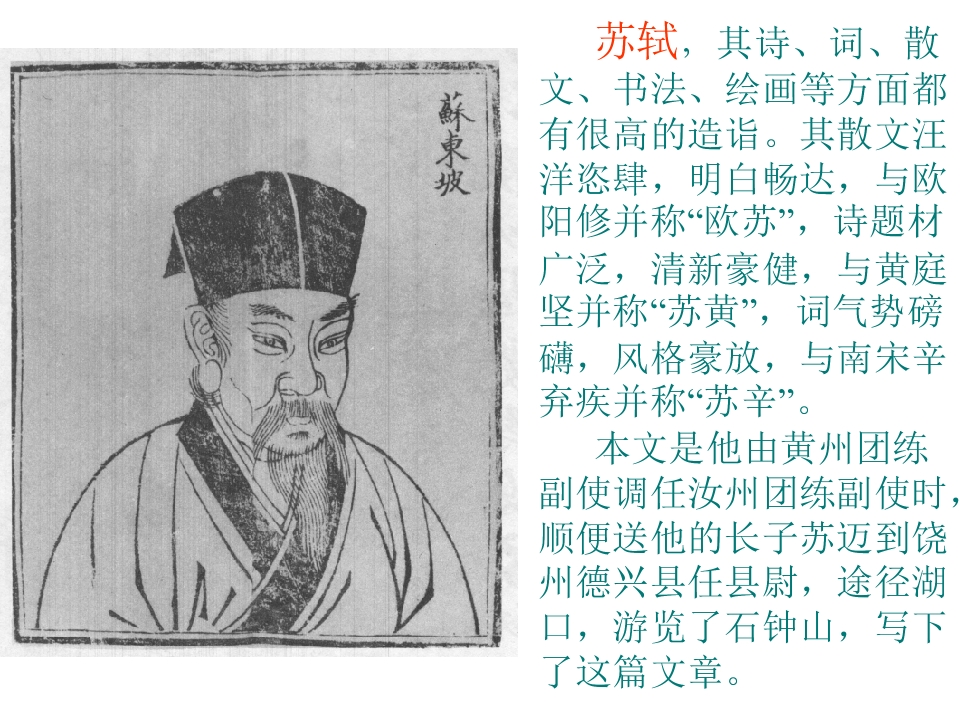 蘇東坡
苏轼，其诗、词、散
文、书法、绘画等方面都
有很高的造诣。其散文汪
洋恣肆，明白畅达，与欧
阳修并称“欧苏”，诗题材
广泛，清新豪健，与黄庭
坚并称“苏黄”，词气势磅
礴，风格豪放，与南宋辛
弃疾并称“苏辛”。
本文是他由黄州团练
副使调任汝州团练副使时，
顺便送他的长子苏迈到饶
州德兴县任县尉，途径湖
口，游览了石钟山，写下
了这篇文章。